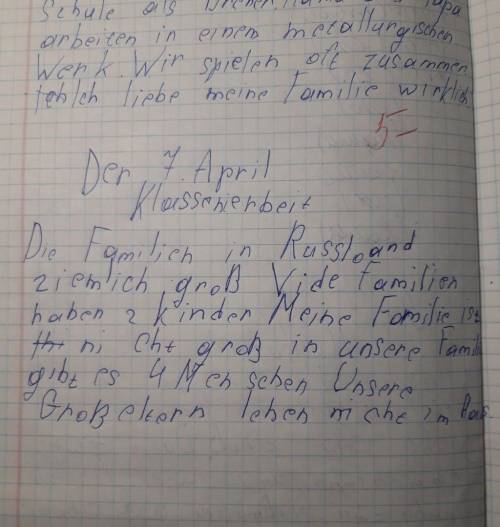 Schule als
arbeiten in einem metallurgischen
Werk. Wir spielen oft zusammen
Ich liebe meine Familie wirklich
5-
Der 7. April
Klassenierbeit
Die Familien in Russland
ziemlich groß Viele Familien
haben 2 Kinder Meine Familie ist
nicht groß in unsere Famili
gibt es 4 Menschen Unsere
Großeltern leben nicht im Haus